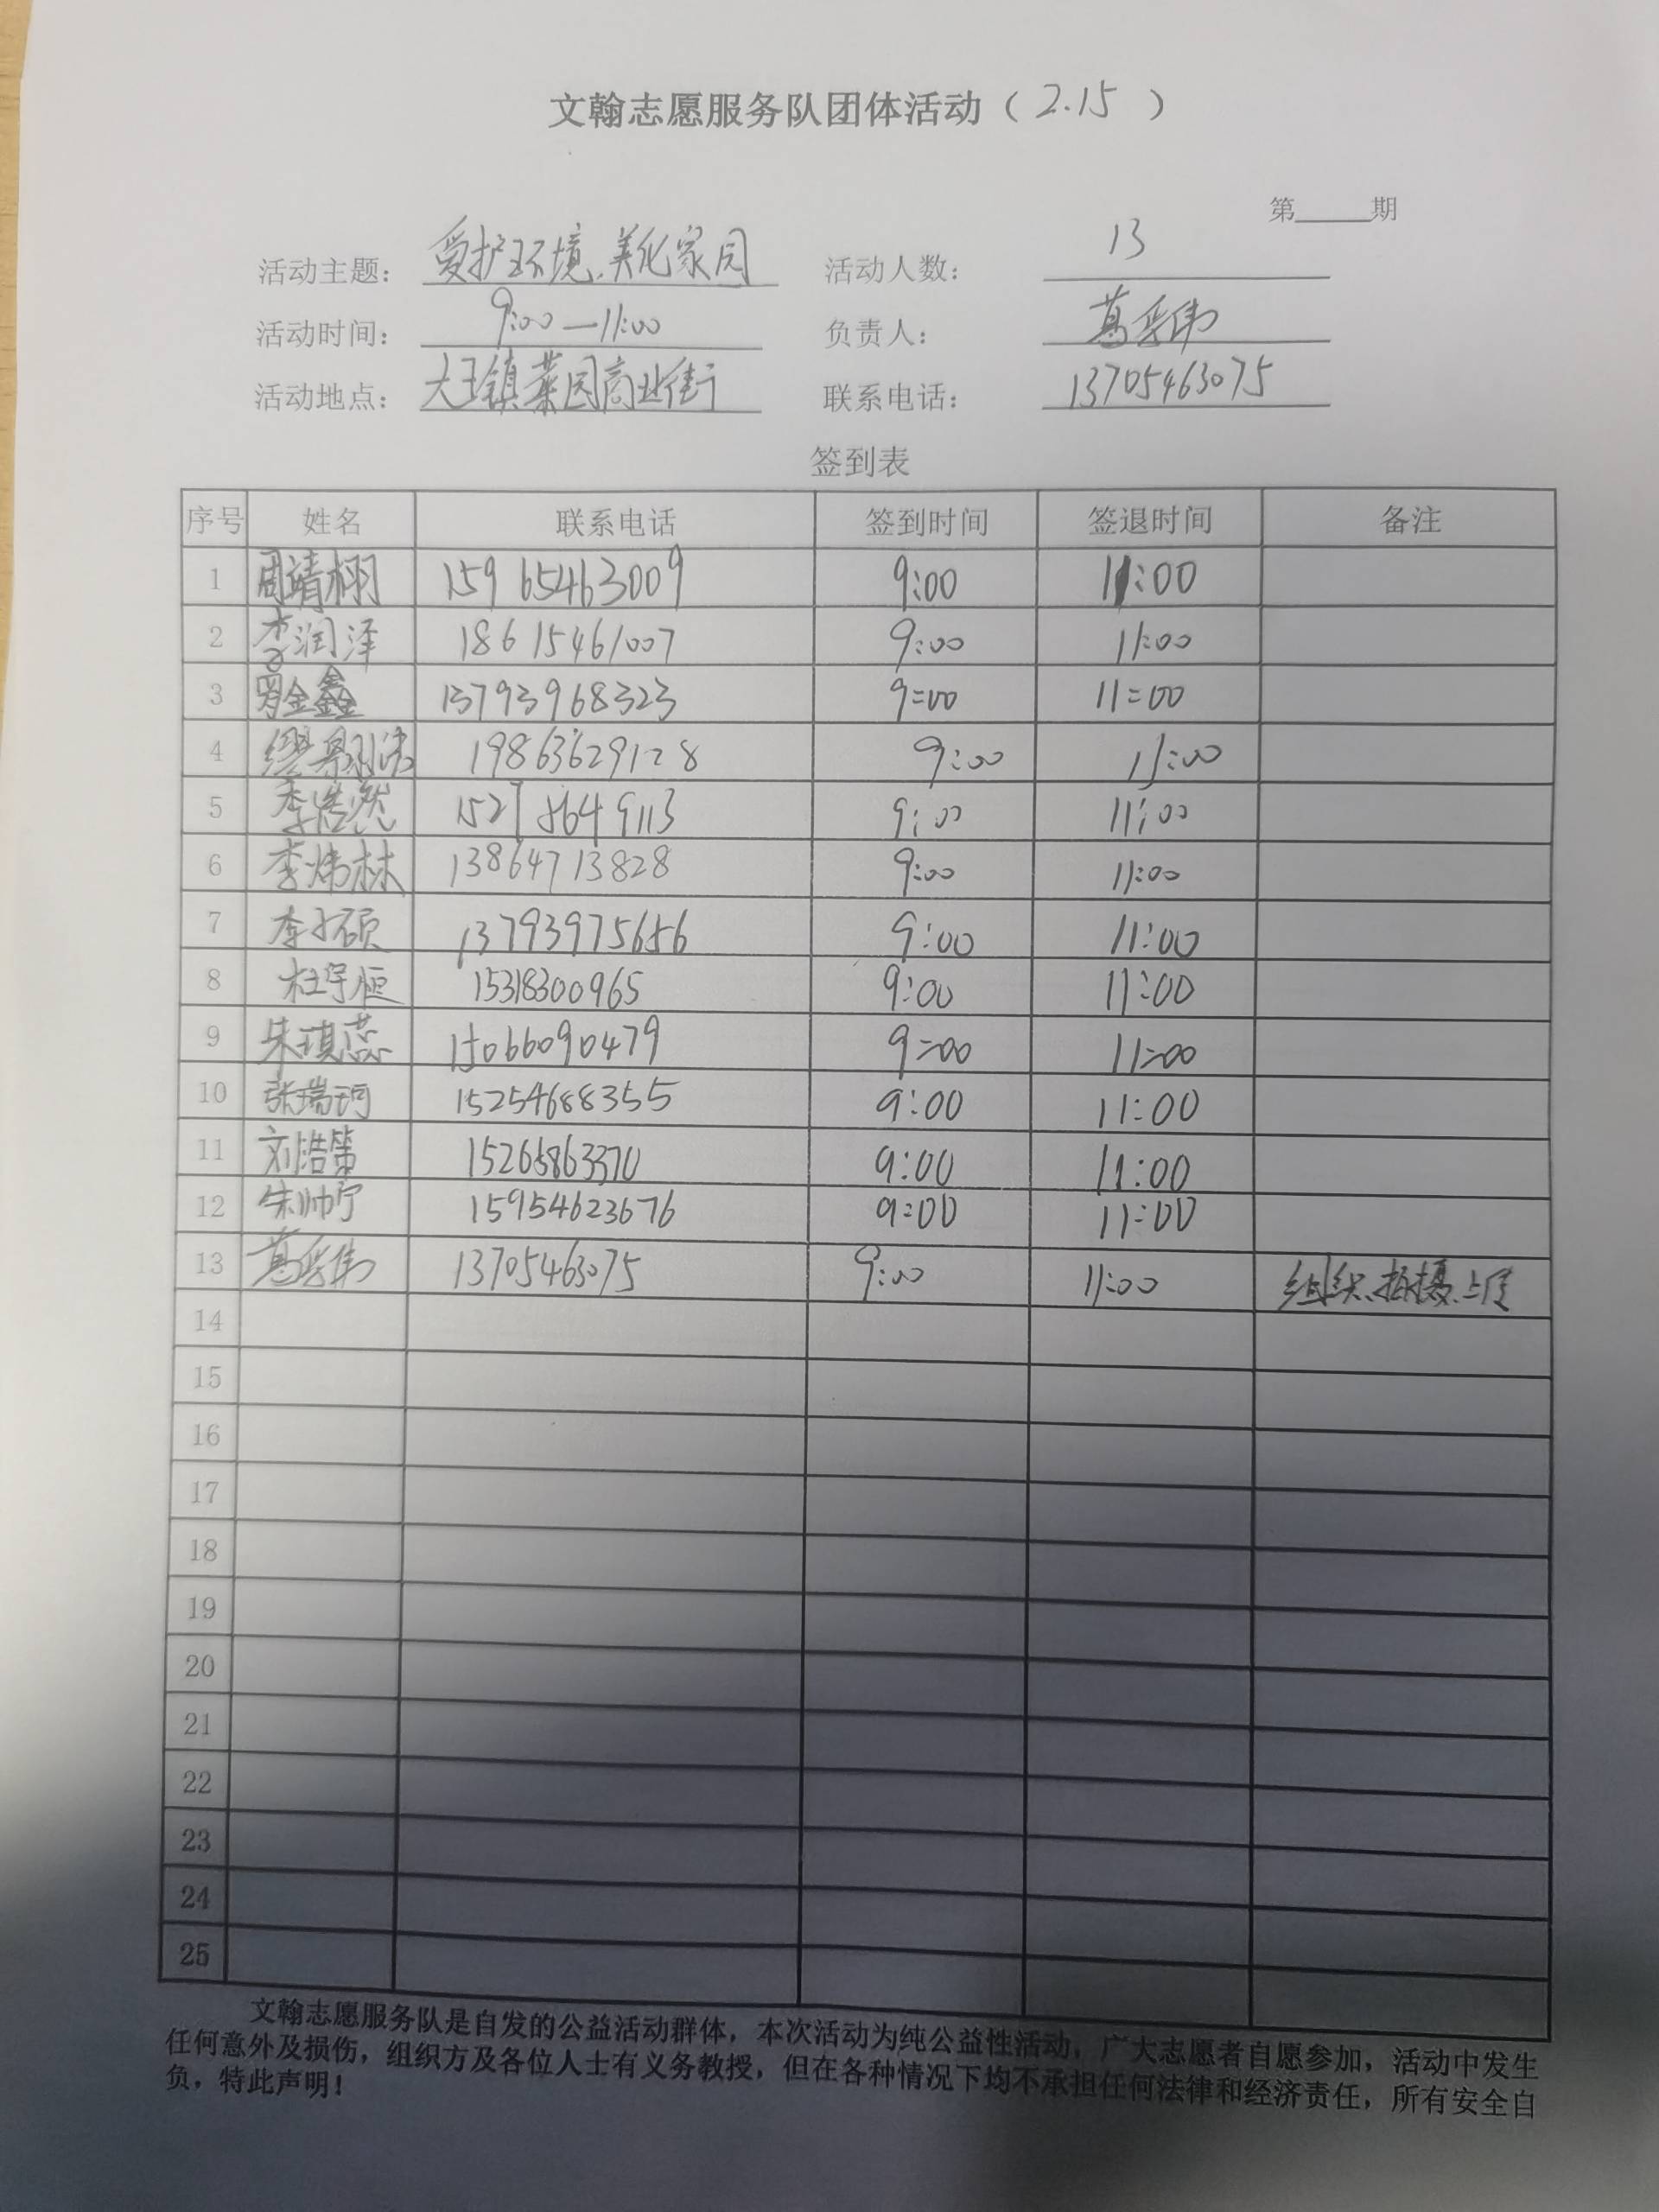 文翰志愿服务队团体活动（2.15）
第____期
活动主题：爱护环境、美化家园 活动人数：13
活动时间：9:00—11:00 负责人：葛岳伟
活动地点：大王镇菜园商业街 联系电话：13705463075
签到表
序号 姓名 联系电话 签到时间 签退时间 备注
1 周靖栩 15965463009 9:00 11:00
2 李润泽 18615461007 9:00 11:00
3 罗金鑫 13793968323 9:00 11:00
4 19863629128 9:00 11:00
5 李浩然 15275649113 9:00 11:00
6 李炜林 13864713828 9:00 11:00
7 李子硕 13793975656 9:00 11:00
8 杜宇恒 15318300965 9:00 11:00
9 朱琪蕊 15066090479 9:00 11:00
10 张瑞珂 15254688355 9:00 11:00
11 刘浩第 15265863370 9:00 11:00
12 朱帅宁 15954623676 9:00 11:00
13 葛岳伟 13705463075 9:00 11:00 组织、拍摄、上传
14
15
16
17
18
19
20
21
22
23
24
25
文翰志愿服务队是自发的公益活动群体，本次活动为纯公益性活动，广大志愿者自愿参加，活动中发生
任何意外及损伤，组织方及各位人士有义务教授，但在各种情况下均不承担任何法律和经济责任，所有安全自
负，特此声明！